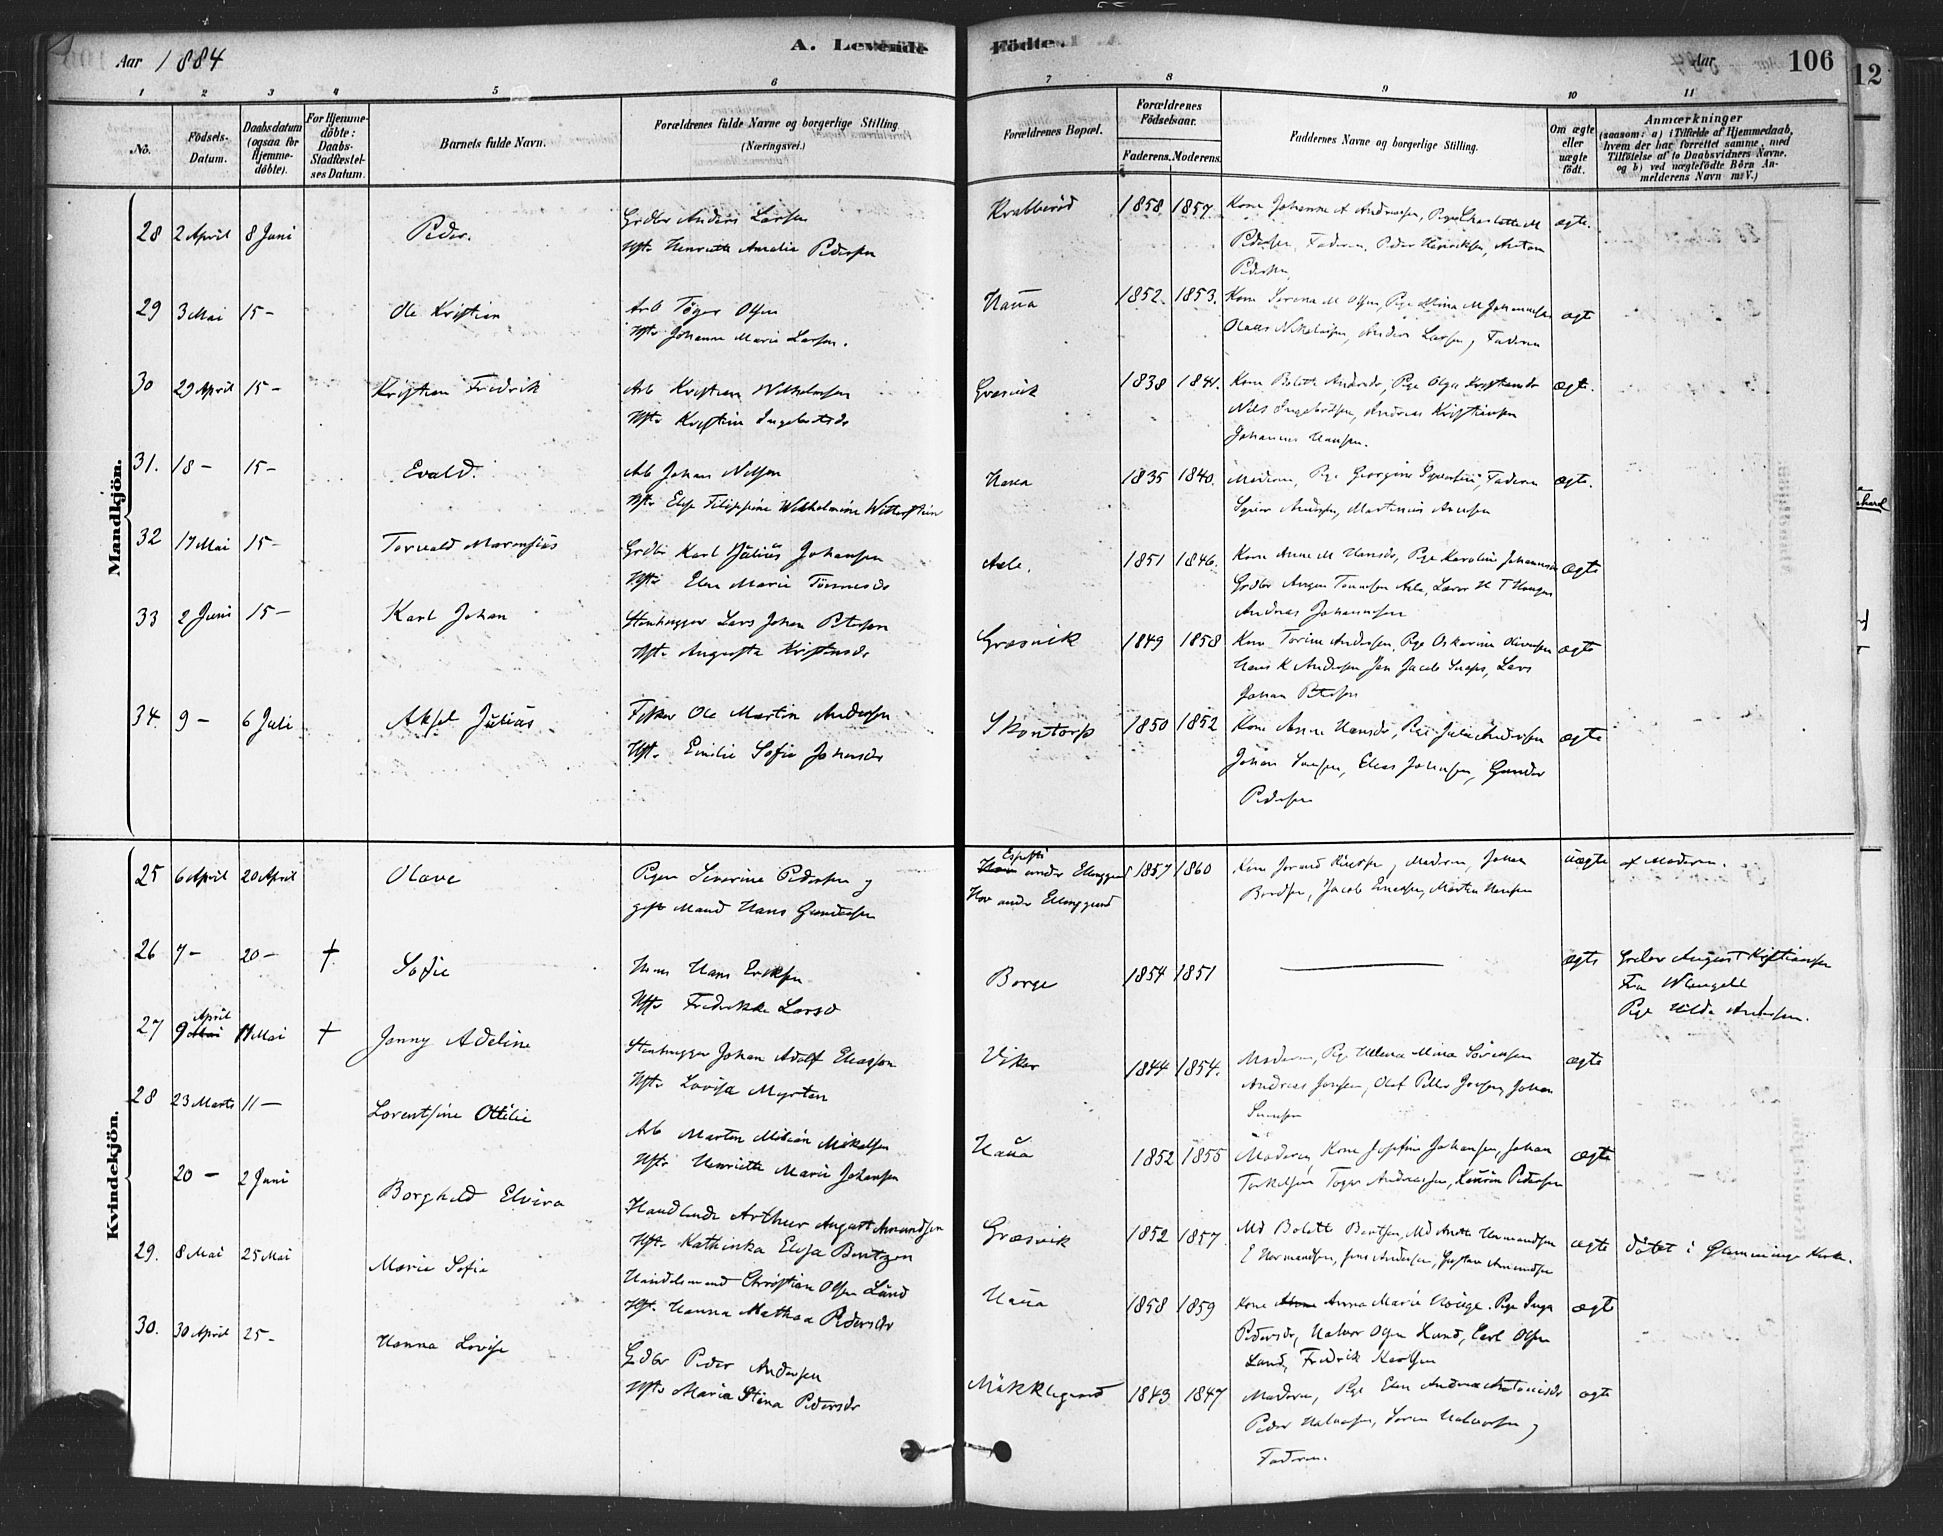 Aar 1884
A. Levende
Födte.
Aar
106
12
1 2 3 4 5 6 7 8 9 10 11
No.
Födsels-Datum.
Daabsdatum (ogsaa for Hjemme-döbte).
For Hjemme-döbte: Daabs-Stadfæstel-ses Datum.
Barnets fulde Navn.
Forældrenes fulde Navne og borgerlige Stilling (Næringsvei.)
Forældrenes Bopæl.
Forældrenes Födselsaar.
Faderens. Moderens.
Faddernes Navne og borgerlige Stilling.
Om ægte eller uægte födt.
Anmærkninger
(saasom: a) i Tilfælde af Hjemmedaab, hvem der har forrettet samme, med Tilföielse af to Daabsvidners Navne, og b) ved uægtefödte Börn Anmelderens Navn m. V.)
Mandkjön.
28 2 April 8 Juni Peder. Grdbr Anders Larsen
Hst. Henriette Amalie Pedersen
Krabberöd 1858 1857 Kone Johanne A Andreasen, Pige Charlotte M
Pedersen, Faderen, Peder Henriksen, Anton
Pedersen
ægte.
29 3 Mai 15 - Ole Kristian Arb Töger Olsen
Hst. Johanne Marie Larsen.
Haua 1852 1853. Kone Serena M Olsen, Pige Mina M Johannesen
Olaus Nikolaisen, Anders Larsen, Faderen
ægte
30 29 April 15 - Kristian Fredrik Arb Kristian Wilhelmsen
Hst. Kristine Ingebretsdr
Græsvik 1838 1841. Kone Bolette Andersdr, Pige Olga Kristiansdr
Nils Ingebrdsen, Andreas Kristiansen
Johannes Hansen.
ægte.
31. 18 - 15 - Evald. Arb Johan Nilsen
Hst. Elise Filippine Wilhelmine Witterstein
Haua 1835 1840. Moderen, Pige Georgine Severtsen, Faderen
Martinius Arnesen
ægte.
32 17 Mai 15 - Torvald Marensius Grdbr Karl Julius Johansen
Hst. Elen Marie Tönnesdr
Asle. 1851 1846. Kone Anne M Hansdr, Pige Karoline Johannesen
Grdbr August Tönnesen Asle, Lærer H T Haugen
Andreas Johannesen
ægte
33 2 Juni 15 - Karl Johan Stenhugger Lars Johan Petersen
Hst. Augusta Kristensdr
Græsvik 1849 1858 Kone Torine Andersen, Pige Oskarine Olivesen
Hans K Andersen Jan Jacob Lars
Johan Petersen
ægte
34. 9 - 6 Juli Aksel Julius Fisker Ole Martin Andersen
Hst. Emilie Sofie Johansdr
Skontorp 1850 1852 Kone Anne Hansdr, Pige Julie Andersen
Johan Elias Johansen, Gunder
Pedersen
ægte
Kvindekjön.
25 6 April 20 April Olave Pigen Severine Pedersen og
gift Mand Hans Gundersen
under Elinggaard
Hov under Elinggaard
1857 1860 Kone Moderen, Johan
Bordsen, Jacob Martin Hansen
uægte af Moderen.
26 7 - 20 - † Sofie Hans Eriksen
Hst. Fredrikke Larsd
Borge 1854 1851 ægte Grdbr August Kristiansen
Pige Hilda Andersen.
27 9 April 11 Mai † Jenny Adeline Stenhugger Johan Adolf Eliasson
Hst. Lovisa Myrten
Viker 1844 1854. Moderen, Pige Helena Mina Sörensen
Andreas Jonsen, Olof Petter Johan
ægte
28 23 Marts 11 - Lorentsine Ottilie Arb Morten Milian Mikelsen
Hst. Henriette Marie Johansen
Haua 1852 1855 Moderen, Kone Josefine Johansen, Johan
Torkelsen Töger Andreassen, Laurin Pedersen
ægte
20 - 2 Juni Borghild Elvira Handlende Arthur August Amundsen
Hst. Kathinka Elisa Bentzen
Græsvik 1852 1857 Md Bolette Bentsen, Md Anette Hermandsen
E Hermandsen, Jens Andersen, Gustav Amundsen
ægte döbt i Glemminge Kirke.
29. 8 Mai 25 Mai Marie Sofie Handelsmand Christian Olsen Lund
Hst. Hanna Mathea Pedersdr
Haua 1858 1859 Kone Anna Marie Houge. Pige Inga
Pedersdr, Halvor Olsen Lund, Carl Olsen
Lund, Fredrik Karlsen
ægte
30. 30 April 25 - Hanna Lovise Grdbr Peder Andersen
Hst. Maria Stena Pedersdr
Mökklegaard 1843 1847 Moderen, Pige Elen Andrea Antonisdr
Peder Halvorsen, Soren Halvorsen og
Faderen.
ægte